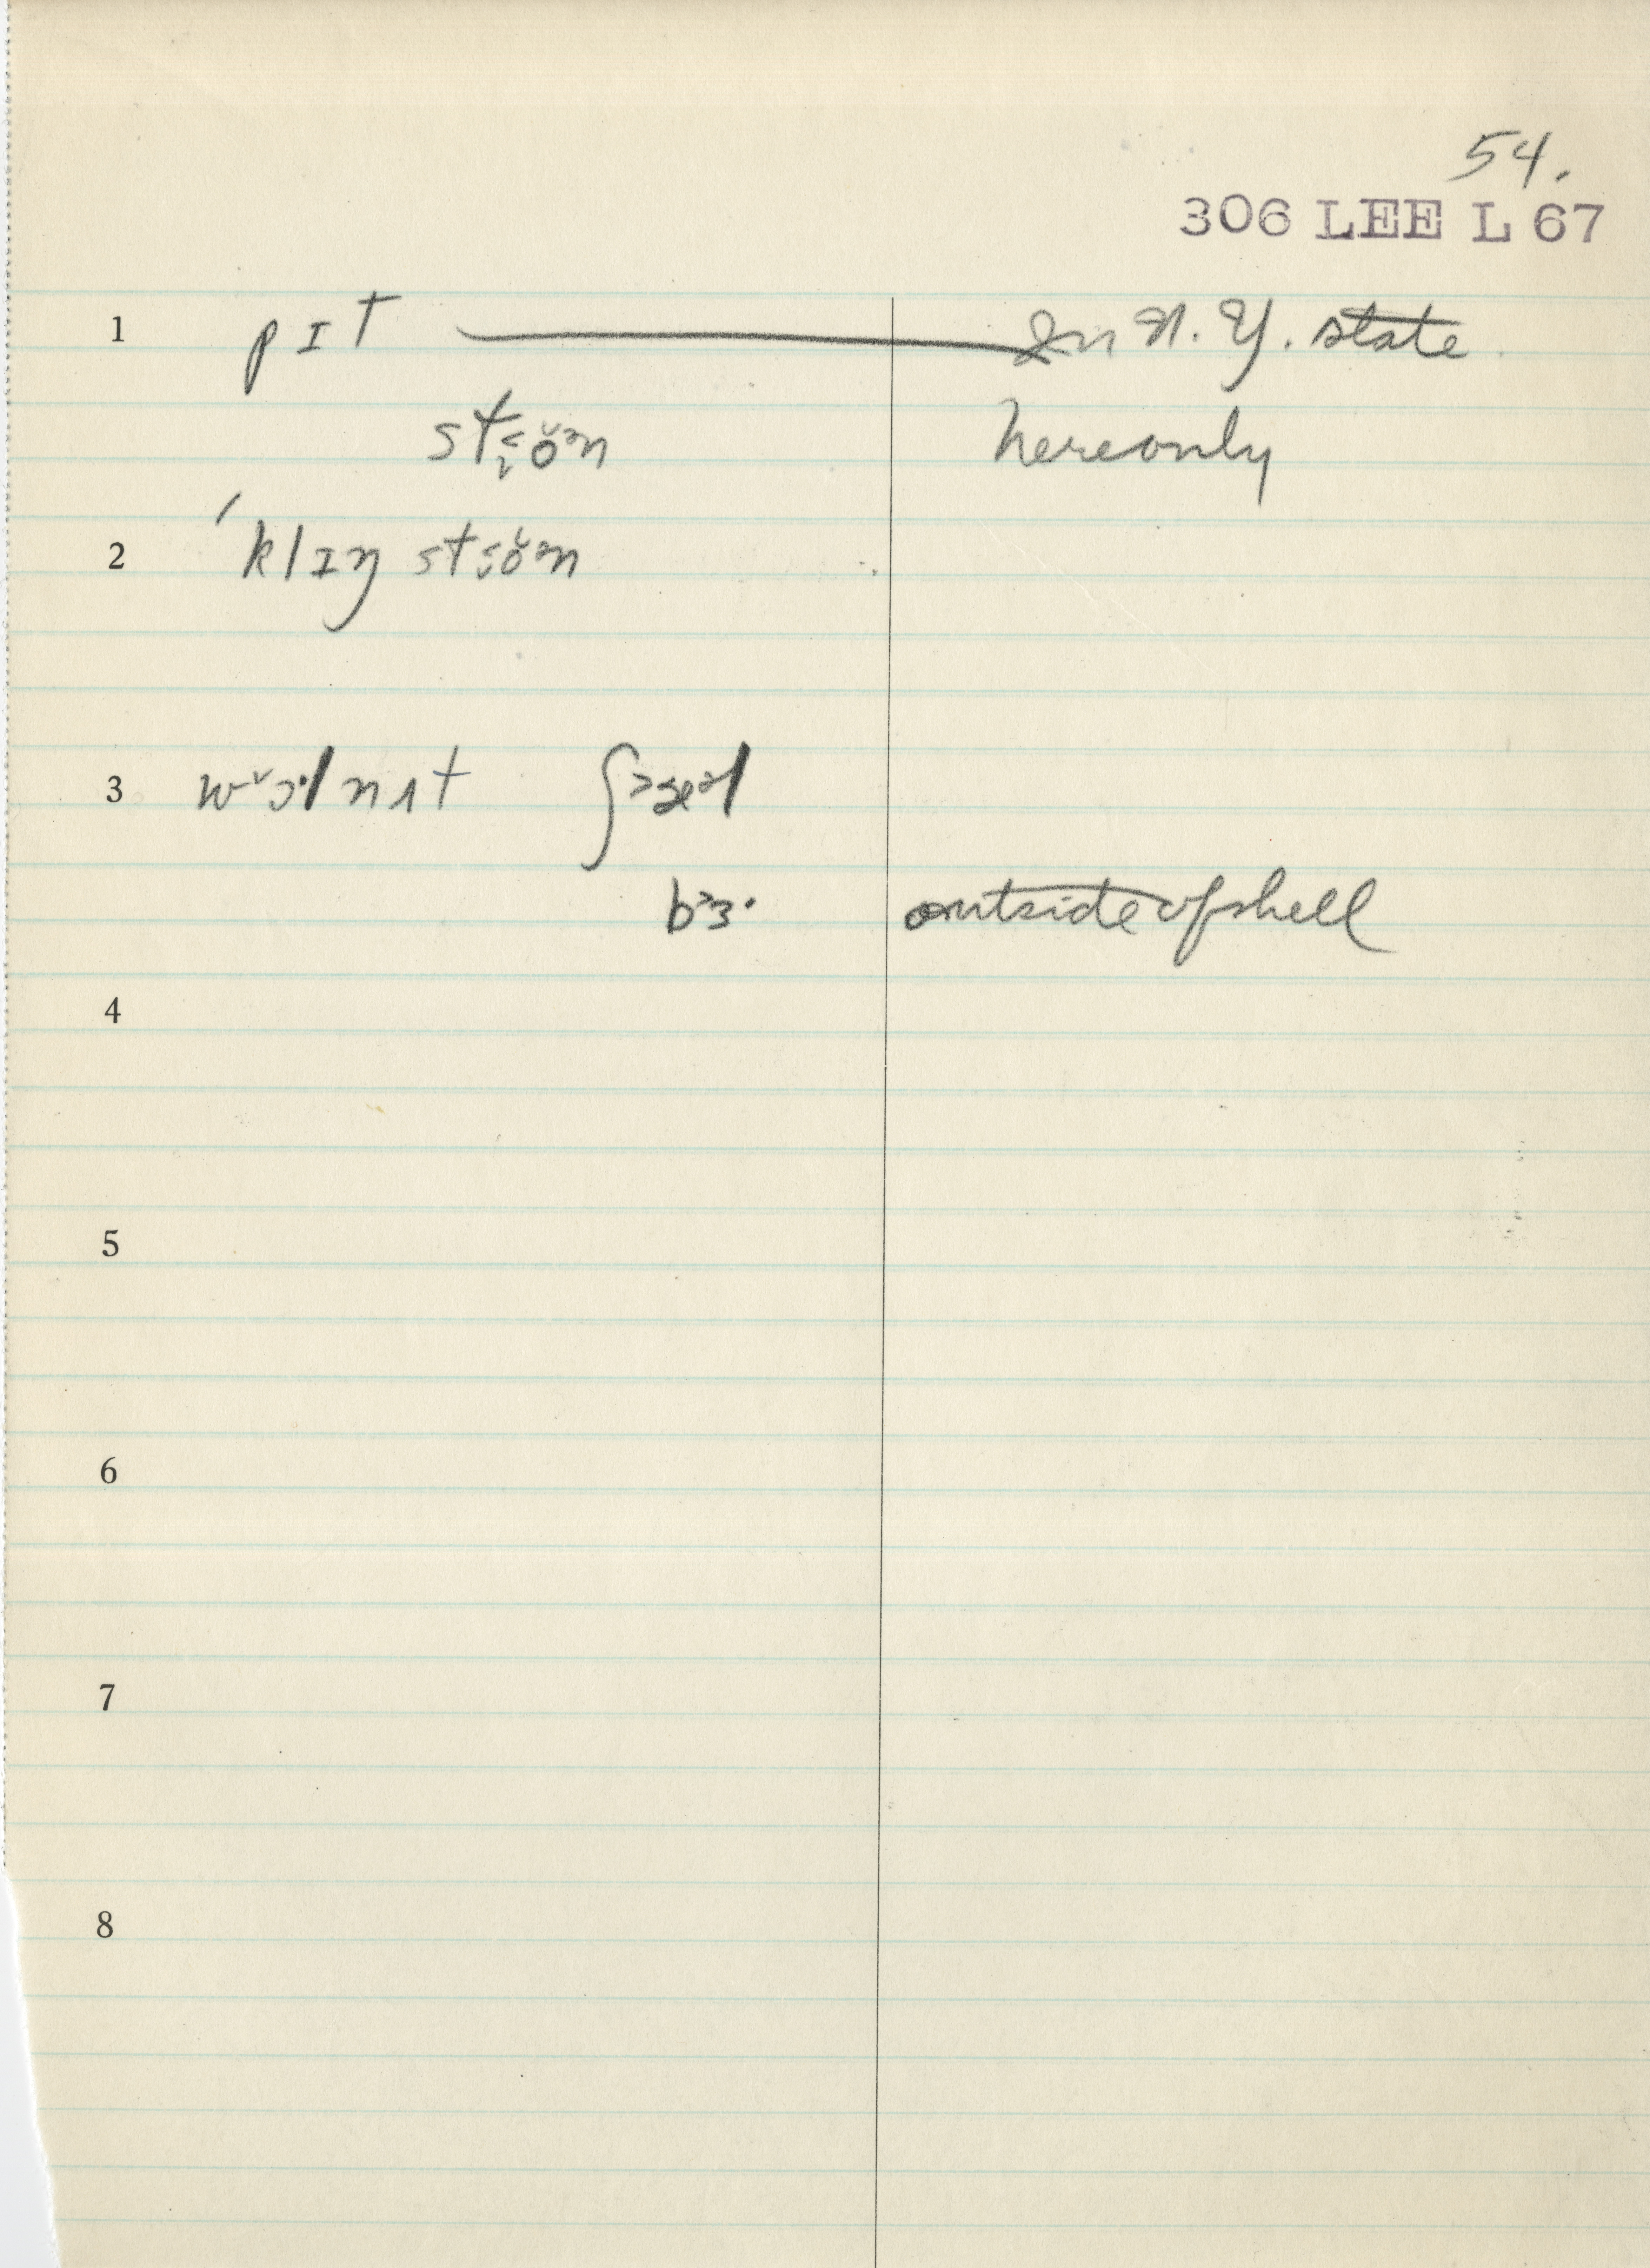 54.
306 LEE L 67
1 pɪt — In N. Y. state
here only
2 ˈklɪŋ
3 nʌt
outside of shell
4
5
6
7
8